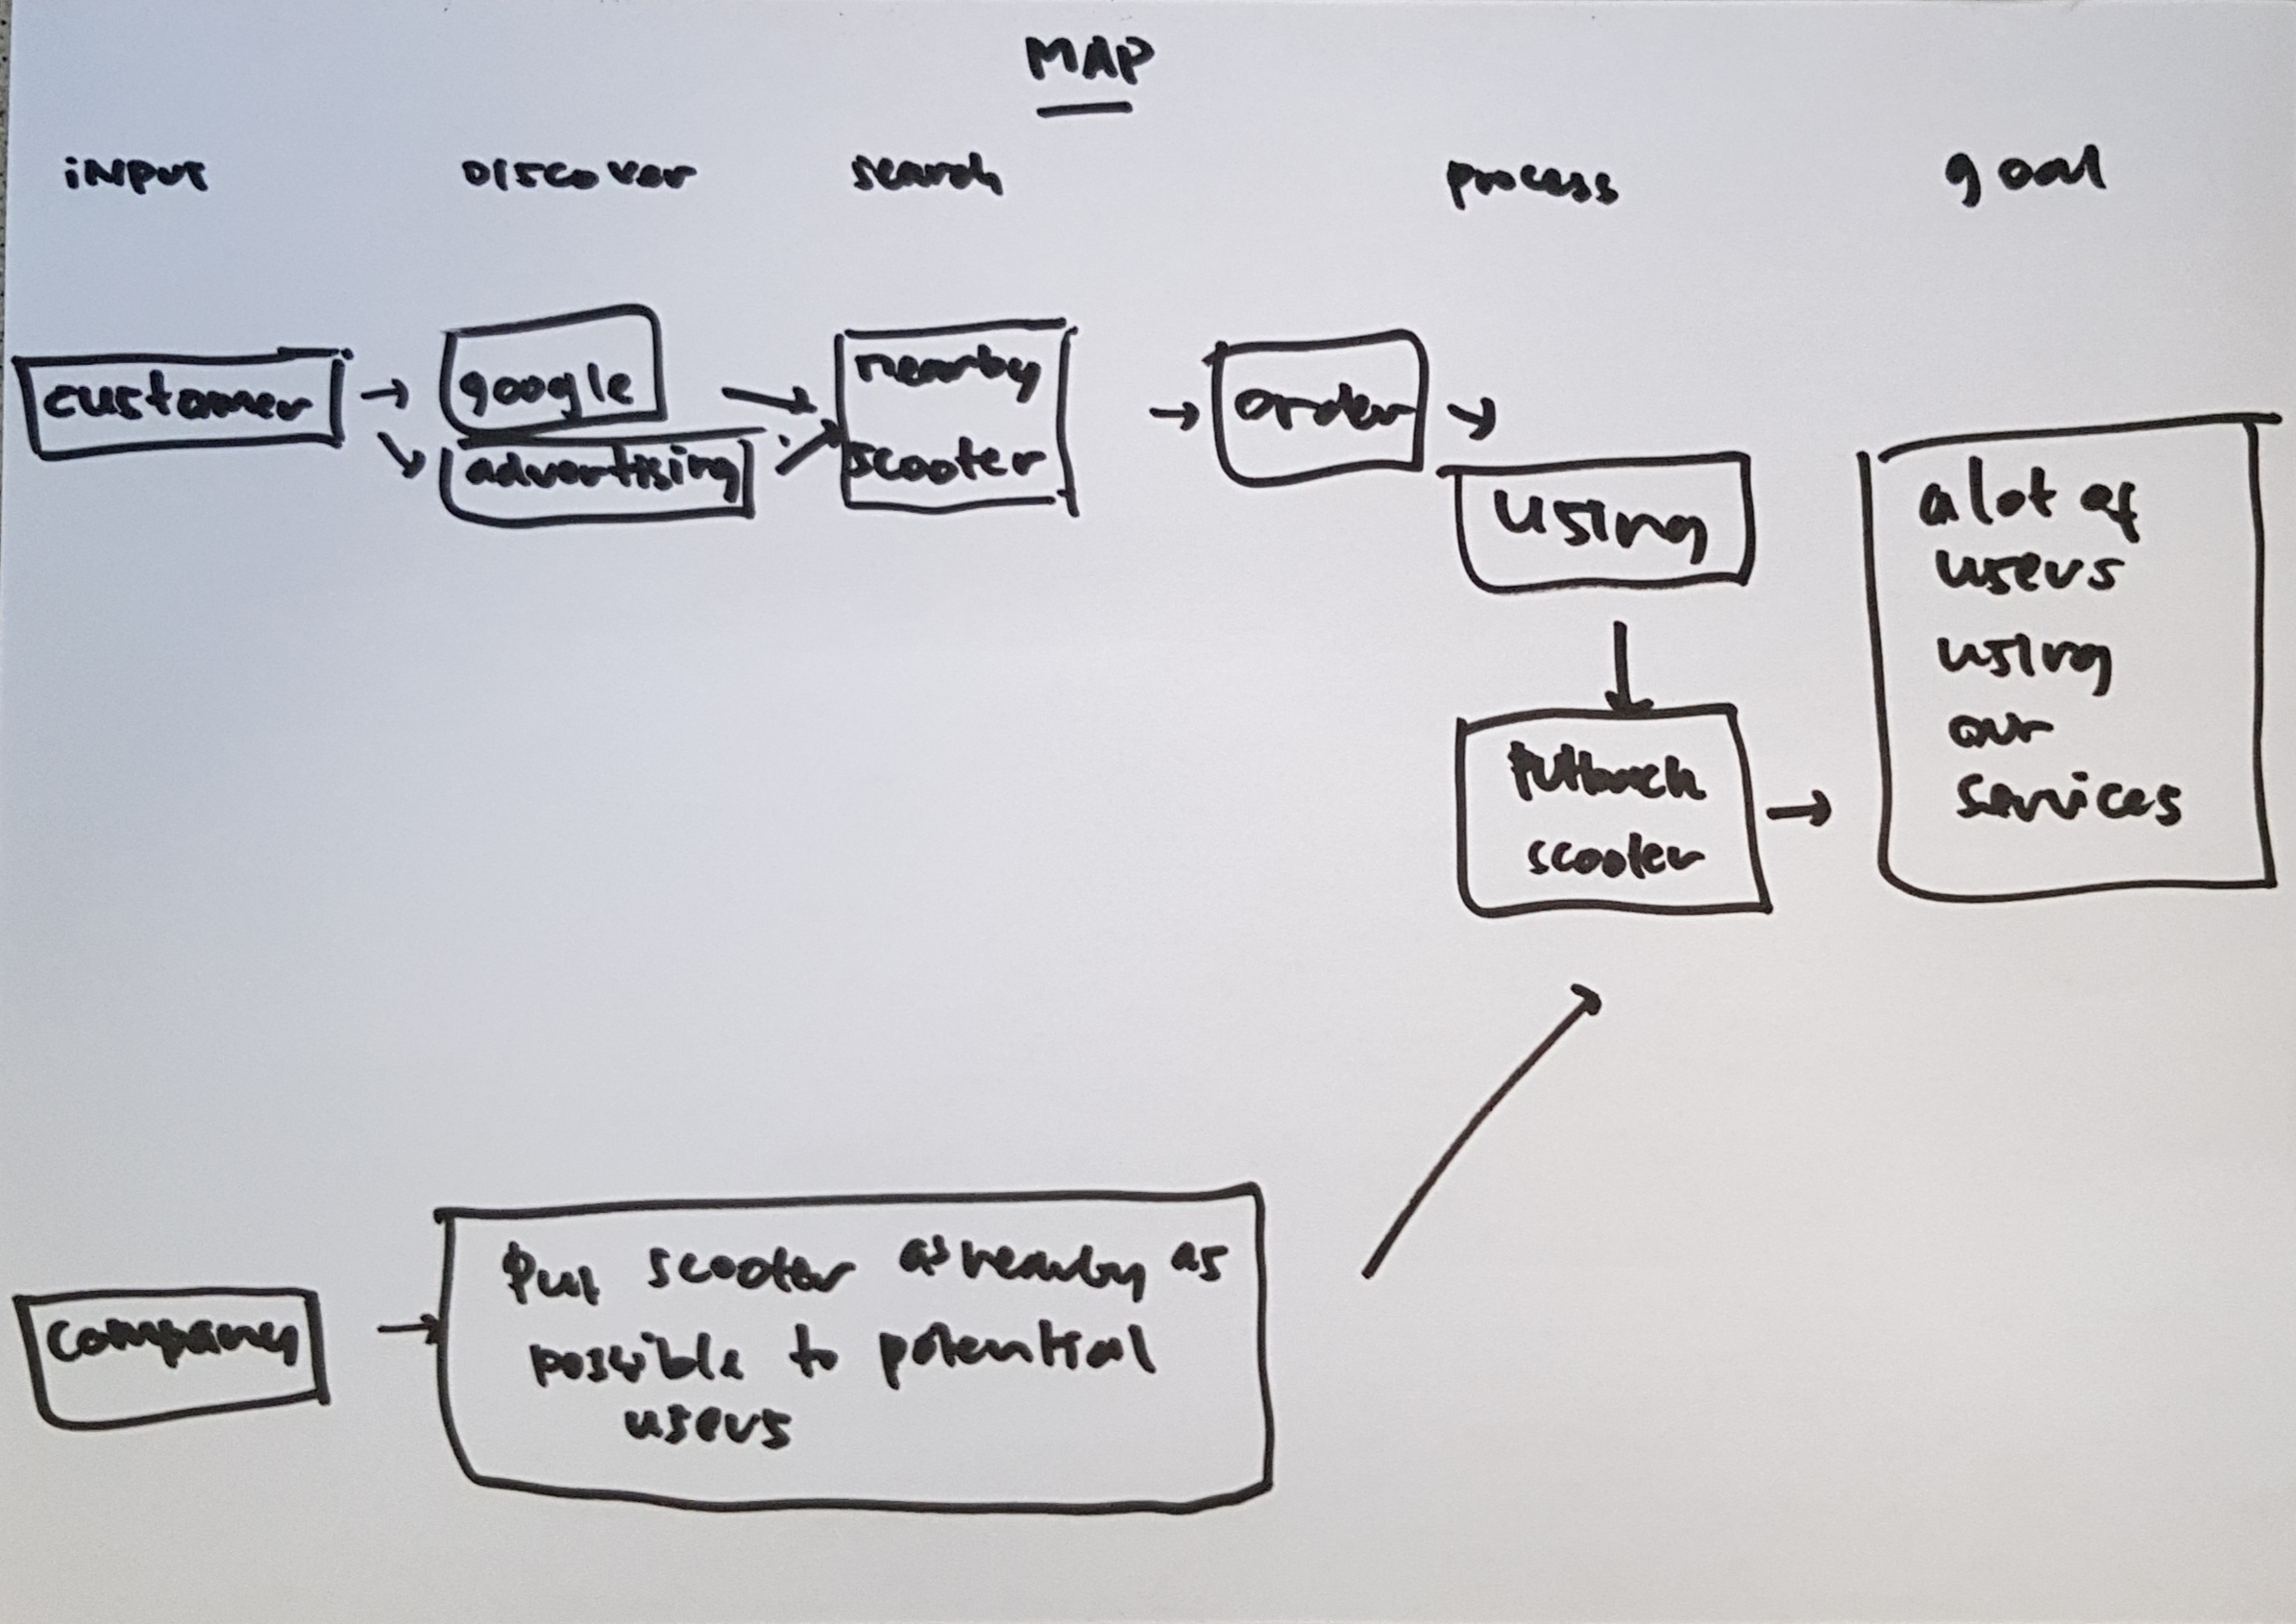 MAP
input
Discover
search
process
goal
customer
→
google
→
nearby
scooter
→
order
→
↘
advertising
↗
using
↓
Putback
scooter
→
a lot of
users
using
our
services
company
→
Put scooter as nearby as
possible to potential
users